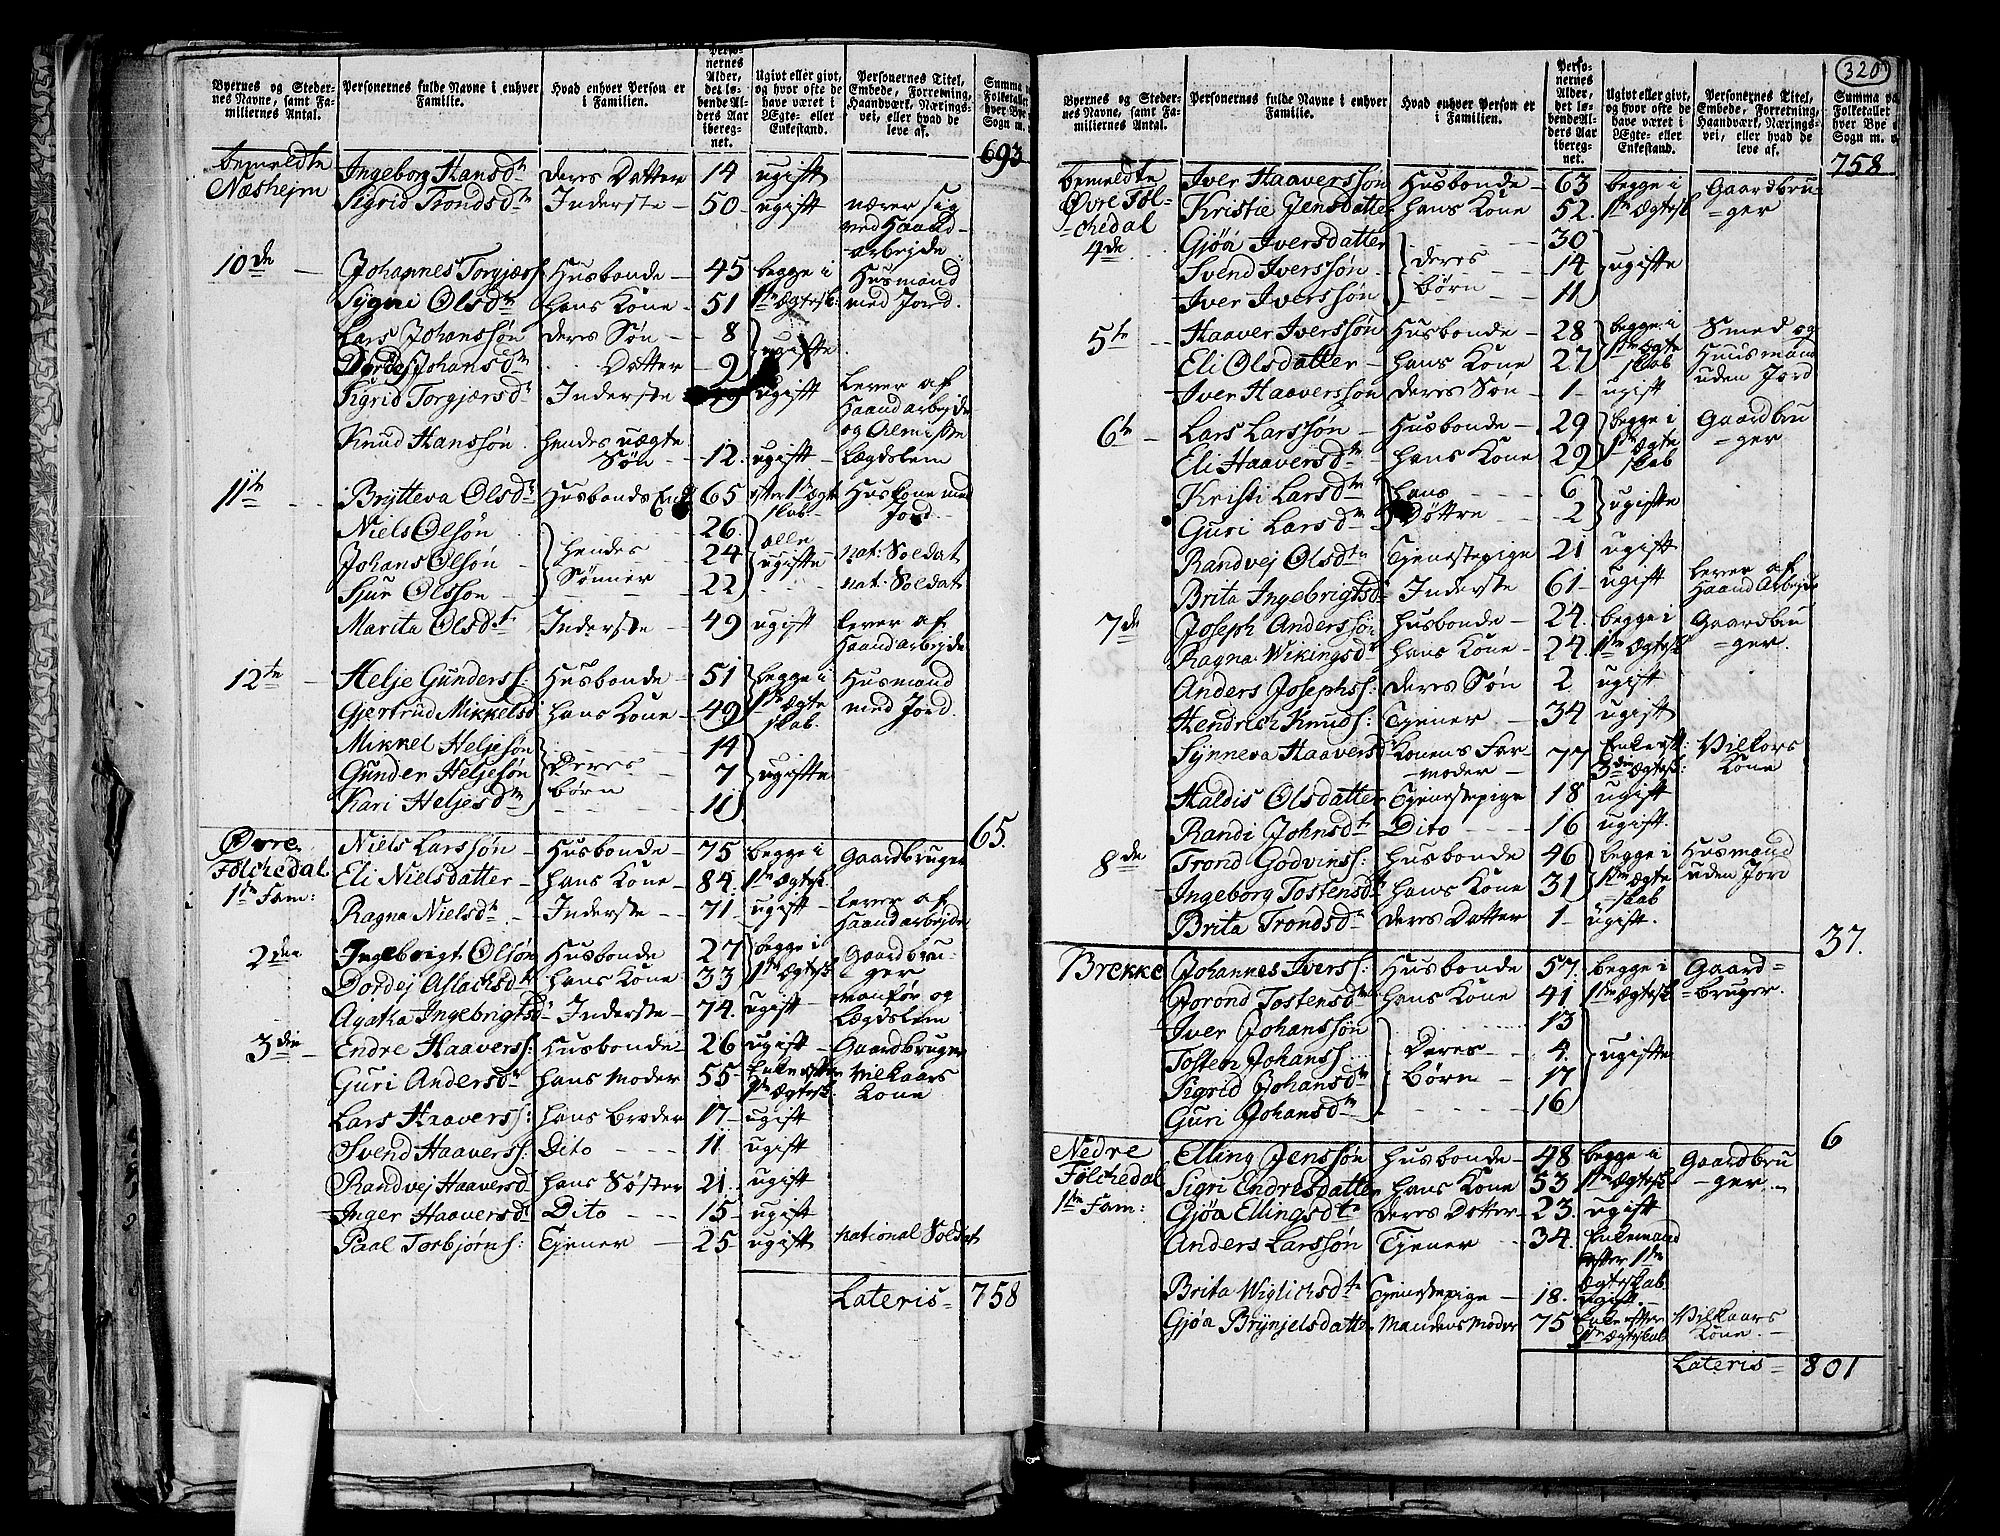 Byernes og Stedernes Navne, samt Familiernes Antal. | Personernes fulde Navne i enhver Familie. | Hvad enhver Person er i Familien. | Personernes Alder, det løbende Alders Aar iberegnet. | Ugivt eller givt, og hvor ofte de have været i Ægte- eller Enkestand. | Personernes Titel, Embede, Forretning, Haandværk, Næringsvei, eller hvad de leve af. | Summa Folketallet hver Bye Sogn m.
693
bemeldte Næshejm | Ingeborg Hansdtr | deres Datter | 14 | ugift
Sigrid Trondsdtr | Inderste | 50 | ugift | nærer sig ved Haandarbejde
10de | Johannes Torgjærss | Husbonde | 45 | begge i | Husmand
Sygni Olsdtr | hans Kone | 51 | 1ste Ægtesk: | med Jord.
Lars Johanssøn | deres Søn | 8 | ugifte
Dordej Johansdtr | Datter | 2
Sigrid Torgjærsdtr | Inderste | ugift | lever af Haandarbejde og Almisse
Knud Hanssøn | hendes uægte Søn | 12 | ugift | Lægdslem
11te | Brytteva Olsdtr | Husbonds Enke | 65 | efter 1ste Ægteskab | Huskone med Jord
Niels Olsøn | hendes | 26 | alle
Johans Olsøn | Sønner | 24 | ugifte | nat: Soldat
Sjur Olsson | 22 | nat: Soldat
Marita Olsdtr | Inderste | 49 | ugift | lever af Haandarbejde
12te | Helje Gunderss: | Husbonde | 51 | begge i | Husmand
Gjertrud Mikkelsd | hans Kone | 49 | 1ste Ægteskab. | med Jord.
Mikkel Heljesøn | Deres | 14
Gunder Heljesøn | børn | 7 | ugifte
Kari Heljesdtr | 11
65.
Øvre Følchedal 1ste Fam: | Niels Larssøn | Husbonde | 75 | begge i | Gaardbruger
Eli Nielsdatter | hans Kone | 84 | 1ste Ægtesk.
Ragna Nielsdtr | Inderste | 71 | ugift | lever af Haandarbejde
2den | Ingebrigt Olsøn | Husbonde | 27 | begge i | Gaardbruger
Dordej Aslachsdtr | hans Kone | 33 | 1ste Ægtesk.
Agatha Ingebrigtsd | Inderste | 74. | ugift | vanfør og Lægdslem
3die | Endre Haaverss: | Husbonde | 26 | ugift | Gaardbruger
Guri Andersdtr | hans Moder | 55 | Enke efter 1ste Ægtesk. | Vilkaars Kone
Lars Haaverss: | hans Broder | 17 | ugift
Svend Haaverss: | Dito | 11 | ugift
Randvej Haaversd | hans Søster | 21 | ugift
Inger Haaversdtr | Dito | 15 | ugift
Paal Torbjørns: | Tjener | 25 | ugift | National Soldat
Lateris = 758
320
Byernes og Stedernes Navne, samt Familiernes Antal. | Personernes fulde Navne i enhver Familie. | Hvad enhver Person er i Familien. | Personernes Alder, det løbende Alders Aar iberegnet. | Ugivt eller givt, og hvor ofte de have været i Ægte- eller Enkestand. | Personernes Titel, Embede, Forretning, Haandværk, Næringsvei, eller hvad de leve af. | Summa Folketallet hver Bye Sogn m.
758
bemeldte Øvre Følchedal 4de | Iver Haaverssøn | Husbonde | 63 | begge i | Gaardbruger
Kristie Jensdatter | hans Kone | 52. | 1ste Ægtesk
Gjøa Iversdatter | deres | 30
Svend Iverssøn | børn | 14 | ugifte
Iver Iverssøn | 11
5te | Haaver Iverssøn | Husbonde | 28 | begge i | Smed og
Eli Olsdatter | hans Kone | 27 | 1ste Ægteskab | Huusmand uden Jord
Iver Haaverssøn | deres Søn | 1 | ugift
6te | Lars Larssøn | Husbonde | 29 | begge i | Gaardbruger
Eli Haaversdtr | hans Kone | 29 | 1ste Ægteskab
Kristi Larsdtr | hans | 6 | ugifte
Guri Larsdtr | Døttre | 2
Randvej Olsdtr | Tjenestepige | 21 | ugift
Brita Ingebrigtsd | Inderste | 61 | ugift | lever af Haand Arbejde
7de | Joseph Anderssøn | Husbonde | 24. | begge i | Gaardbruger.
Ragna Wikingsdtr | hans Kone | 24. | 1ste Ægtesk
Anders Josephss: | deres Søn | 2 | ugift
Hendrich Knuds: | Tjener | 34 | ugift
Synneva Haaversd | Konens Farmoder | 77 | Enke eft: 3die Ægtesk: | Vilkors Kone
Haldis Olsdatter | Tjenestepige | 18 | ugift
Randi Johnsdtr | Dito | 16 | ugift.
8de | Trond Godvinss: | Husbonde | 46 | begge i | Husmand
Ingeborg Tostensdtr | hans Kone | 31 | 1ste Ægteskab | uden Jord
Brita Trondsdtr | deres Datter | 1 | ugift.
37.
Brekke | Johannes Iverss: | Husbonde | 57. | begge i | Gaardbruger.
Jorond Tostensdtr | hans Kone | 41 | 1ste Ægtesk
Iver Johanssøn | 13
Tosten Johanss: | Deres | 4. | ugifte
Sigrid Johansdtr | børn | 17
Guri Johansdtr | 16
6
Nedre Følchedal 1ste Fam: | Elling Jenssøn | Husbonde | 48 | begge i | Gaardbruger
Sigri Endresdatter | hans Kone | 53 | 1ste Ægtesk
Gjøa Ellingsdtr | deres Datter | 23. | ugift
Anders Larssøn | Tjener | 34. | Enkemand efter 1ste Ægteskab
Brita Wiglichsdtr | Tjenestepige | 18. | ugift.
Gjøa Brynjelsdatter | Mandens Moder | 75 | Enke efter 1ste Ægteskab | Vilkaars Kone
Lateris = 801